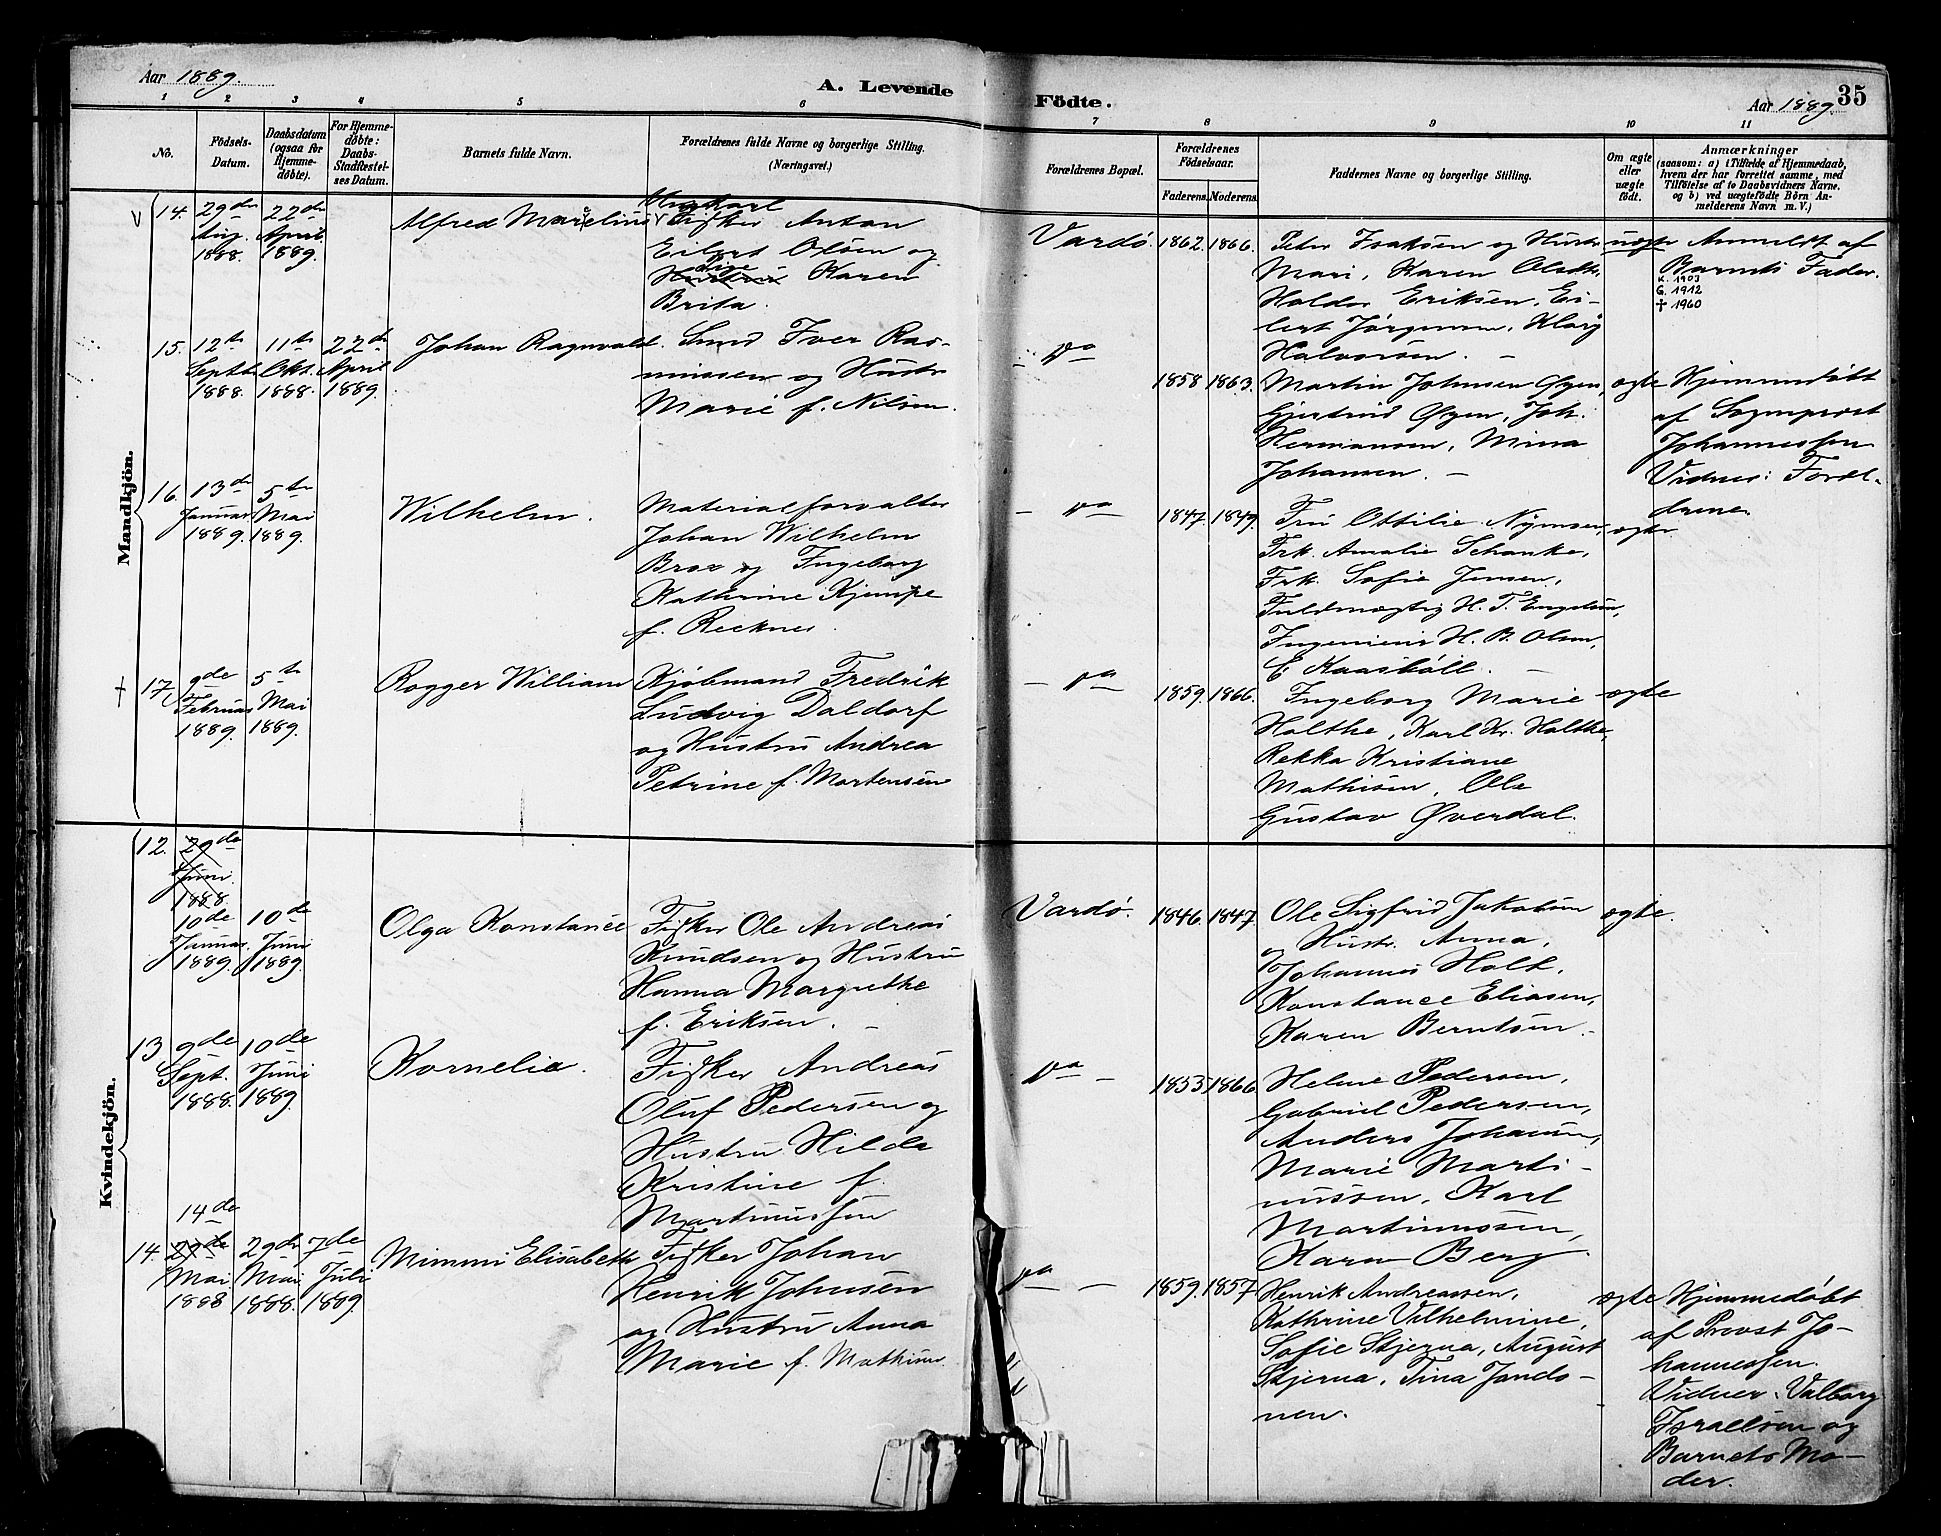 Aar 1889.
A. Levende
Födte.
Aar 1889.
35
1 2 3 4 5 6 7 8 9 10 11
No.
Födsels-
Datum.
Daabsdatum
(ogsaa for
Hjemme-
døbte).
For Hjemme-
døbte:
Daabs-
Stadfæstel-
ses Datum.
Barnets fulde Navn.
Forældrenes fulde Navne og borgerlige Stilling.
(Næringsvei.)
Forældrenes Bopæl.
Forældrenes
Födselsaar.
Faderens. Moderens.
Faddernes Navne og borgerlige Stilling.
Om ægte
eller
uægte
født.
Anmærkninger
(saasom: a) i Tilfælde af Hjemmedaab,
hvem der har forrettet samme, med
Tilføielse af to Daabsvidners Navne.
og b) ved uægtefødte Børn An-
melderens Navn m. V.)
Mandkjön.
14.
29de
Aug.
1888.
22de
April
1889.
Alfred Marelius
Ungkarl
Fisker Anton
Eilert Olsen og
Pige
Hustru Karen
Brita.
Vardø.
1862. 1866.
Peter Isaksen og Hustru
Mari, Karen Olsdtr,
Haldor Eriksen, Ei-
lert Jørgensen,
Halvorsen. –
uægte
Anmeldt af
Barnets Fader.
K. 1903
G. 1912
† 1960
15.
12te
Septbr
1888.
11te
Okt.
1888.
22de
April
1889.
Johan Ragnvald.
Smed Iver Ras-
mussen og Hustru
Marie f. Nilsen.
– Do
1858 1863.
Martin Johnsen Øyen,
Gjertrud Øyen, Joh.
Hermansen, Mina
Johansen. –
ægte
Hjemmedøbt
af Sogneprest
Johannessen
Vidner: Foræl-
drene.
16.
13de
Januar
1889.
5te
Mai
1889.
Wilhelm.
Materialforvalter
Johan Wilhelm
Brox og Ingeborg
Kathrine Kjempe
f. Recknes.
– Do
1847. 1849.
Fru Ottilie
Frk. Amalie Schanke,
Frk. Sofie Jensen,
Fuldmægtig H. T. Engelsen,
Ingeniør H. B. Olsen,
E. Kaasbøll. –
ægte
17.
9de
Februar
1889.
5te
Mai
1889.
Rogger William
Kjøbmand Fredrik
Ludvig Daldorf
og Hustru Andrea
Petrine f. Mortensen
– Do
1859. 1866.
Ingeborg Marie
Holthe, Karl Kr. Holthe,
Rekka Kristiane
Mathisen, Ole
Gustav Øverdal.
ægte
Kvindekjön.
12.
29de
Juni
1888.
10de
Januar.
1889.
10de
Juni
1889.
Olga Konstance
Fisker Ole Andreas
Knudsen og Hustru
Hanna Margrethe
f. Eriksen. –
Vardø.
1846. 1847.
Ole Sigfrid Jakobsen
og Hustr. Anna,
Johannes Holt,
Konstance Eliasen,
Karen Berntsen.
ægte.
13
9de
Sept.
1888.
10de
Juni
1889.
Kornelia.
Fisker Andreas
Oluf Pedersen og
Hustru Hilda
Kristine f.
Martinussen
Do –
1853 1866
Helene Pedersen,
Gabriel Pedersen,
Anders Johansen,
Marie Marti-
nussen, Karl
Martinussen,
Karen Berg.
14.
14de
29de
Mai
1888
29de
Mai
1888.
7de
Juli
1889.
Mimmi Elisabeth
Fisker Johan
Henrik Johnsen
og Hustru Anna
Marie f. Mathisen
Do –
1859. 1857
Henrik Andreassen,
Kathrine Vilhelmine,
Sofie Stjerna, August
Stjerna, Tina Jando-
nen.
ægte
Hjemmedøbt
af Provst Jo-
hannessen.
Vidner. Valborg
Israelsen og
Barnets Mo-
der.